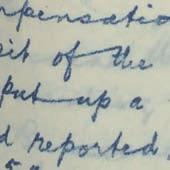 mpensatio
it of the
put up a
d reported